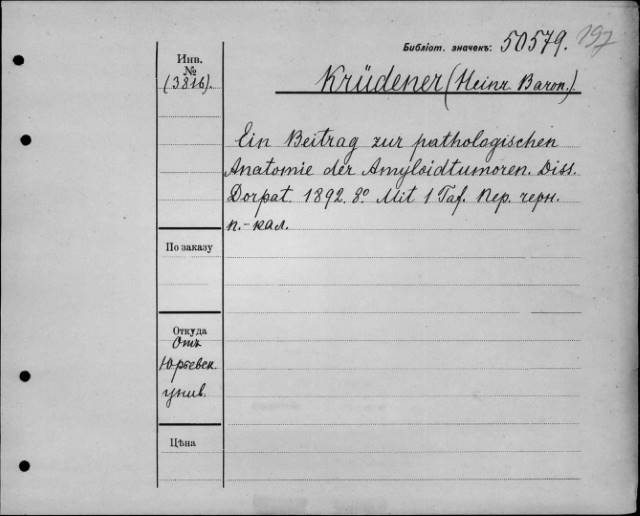 Библіот. значекъ: 50579. 197
Инв.
№
(3816).
Krüdener (Heinr. Baron.)
Ein Beitrag zur pathologischen
Anatomie der Amyloidtumoren. Diss.
Dorpat. 1892. 8º. Mit 1 Taf. Пер. черн.
п.-кал.
По заказу
Откуда
Отъ
Юрьевск.
унив.
Цѣна